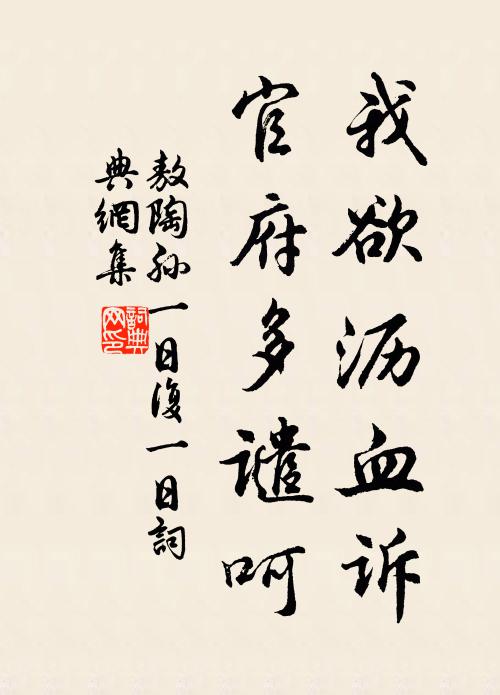 我欲沥血诉
官府多谴呵
敖陶孙一日復一日詞
典網集
詞典网印